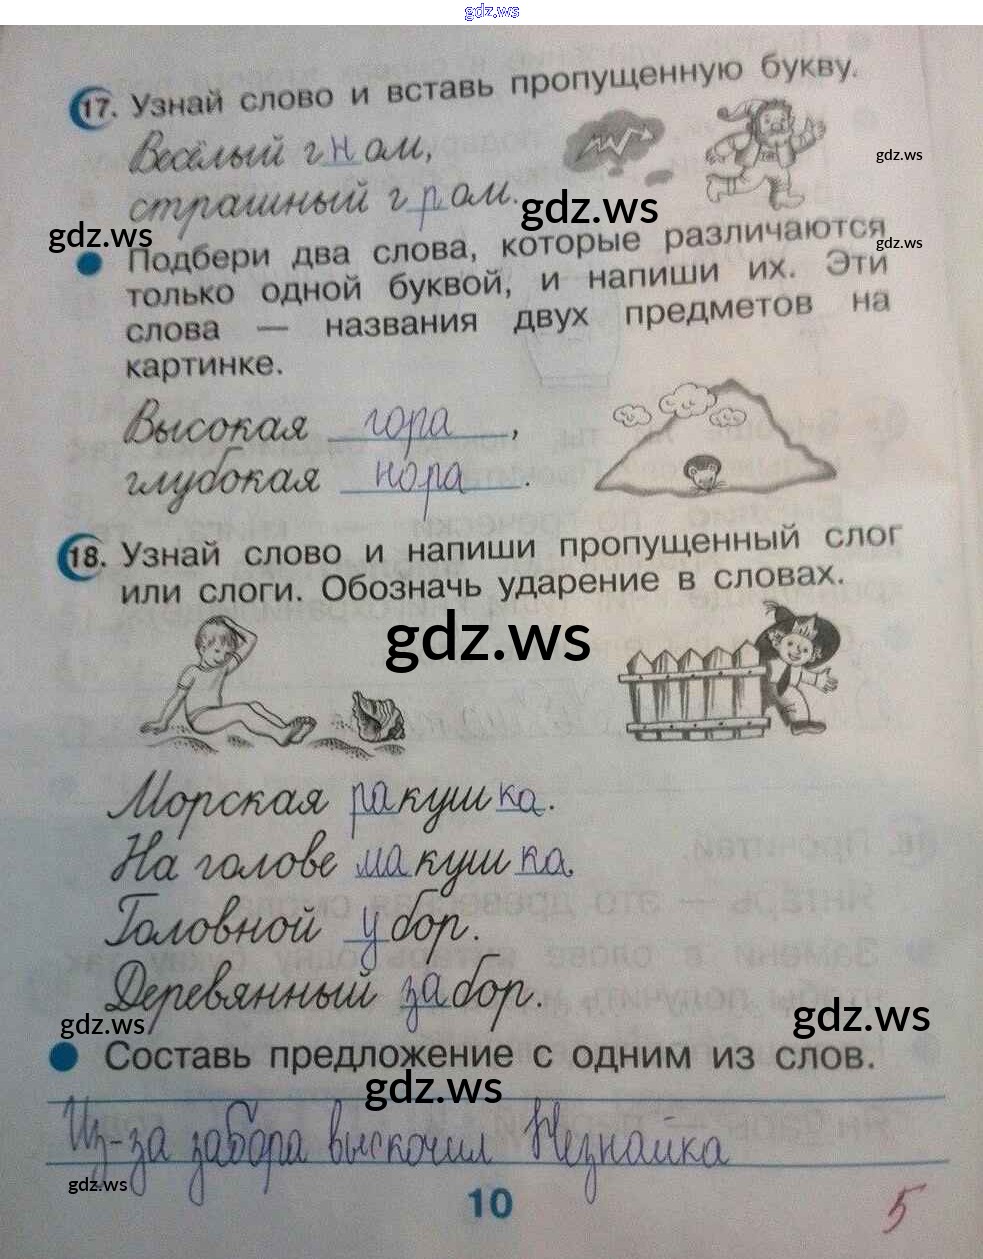 gdz.ws
17. Узнай слово и вставь пропущенную букву.
Весёлый гном,
gdz.ws
страшный гром.
gdz.ws
gdz.ws
gdz.ws
Подбери два слова, которые различаются
только одной буквой, и напиши их. Эти
слова — названия двух предметов на
картинке.
Высокая гора,
глубокая нора.
18. Узнай слово и напиши пропущенный слог
или слоги. Обозначь ударение в словах.
gdz.ws
Морская ракушка.
На голове макушка.
Головной убор.
Деревянный забор.
gdz.ws
gdz.ws
Составь предложение с одним из слов.
gdz.ws
Из-за забора выскочил Незнайка
gdz.ws
10
5